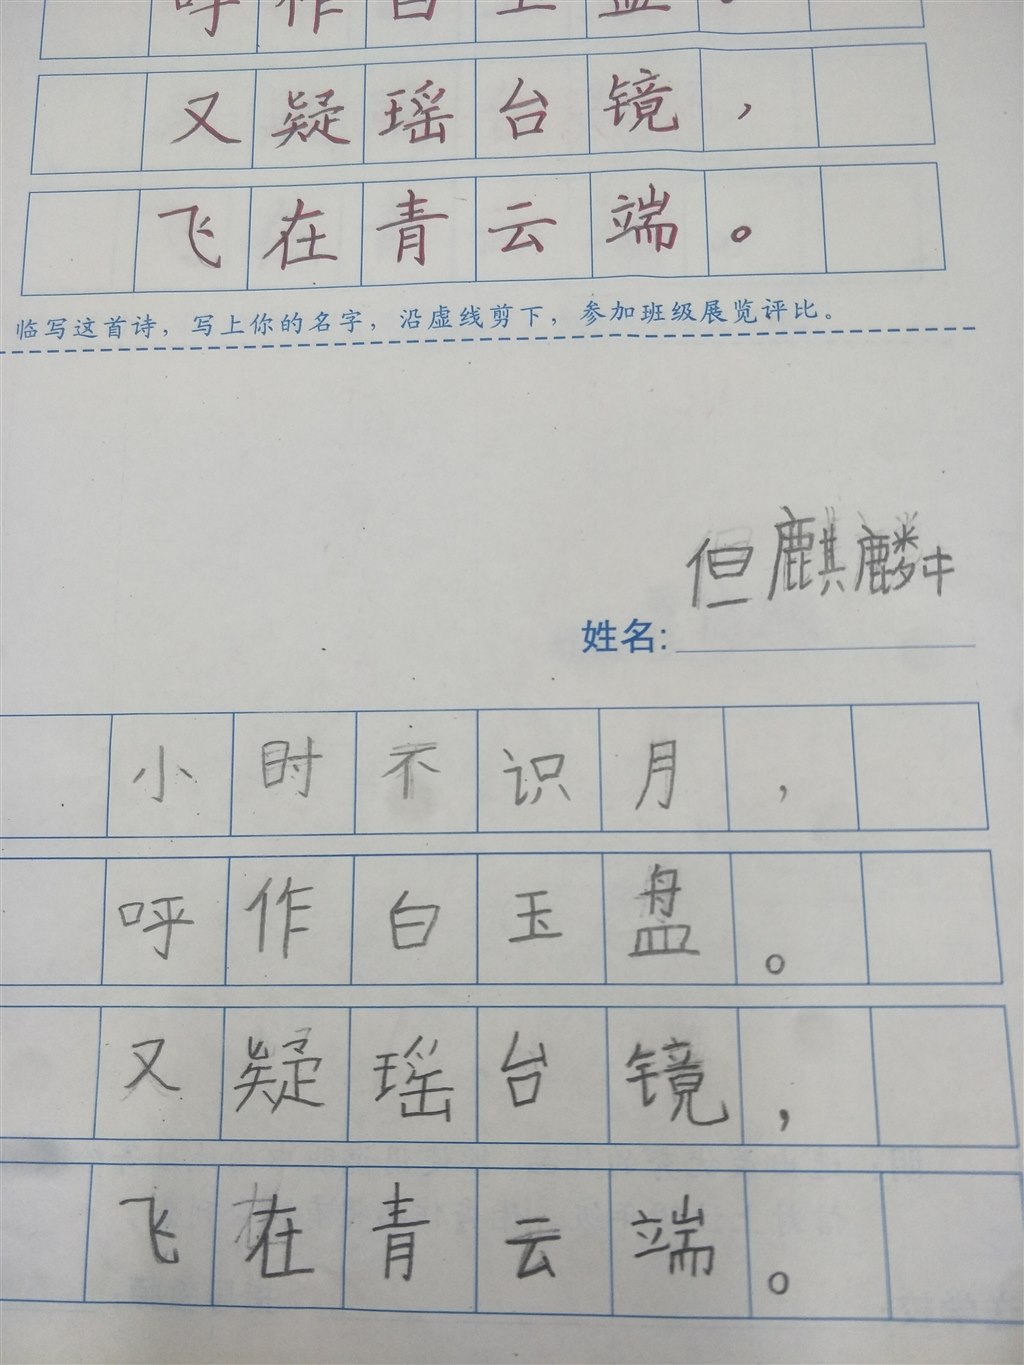 呼作白玉盘。
又疑瑶台镜，
飞在青云端。
临写这首诗，写上你的名字，沿虚线剪下，参加班级展览评比。
但麒麟
姓名:
小时不识月，
呼作白玉盘。
又疑瑶台镜，
飞在青云端。